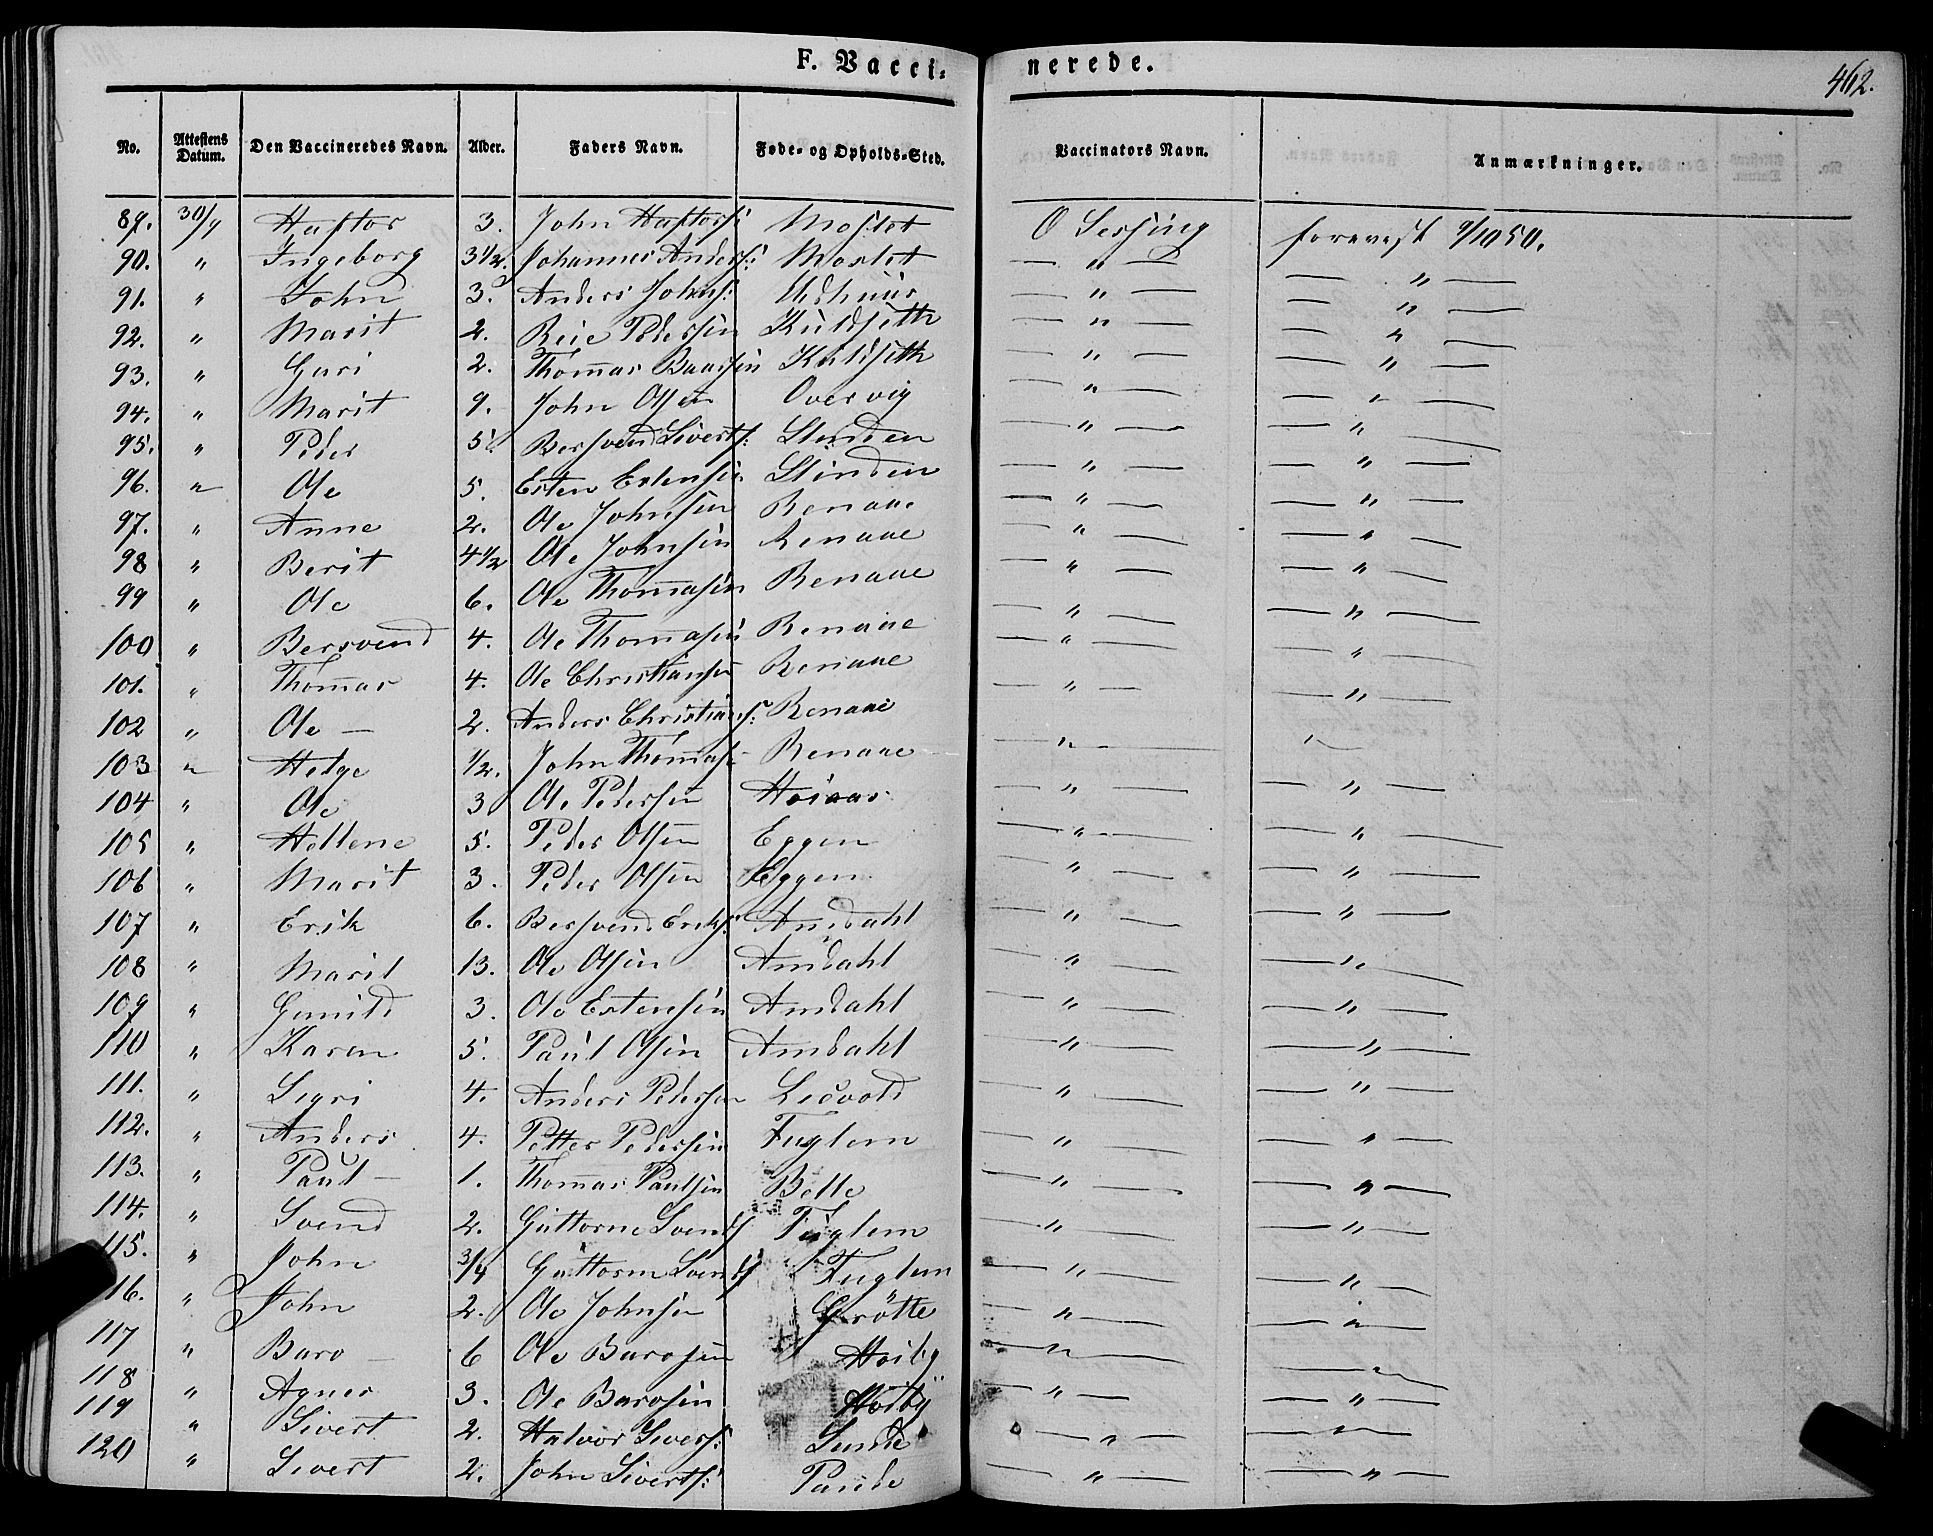 F. Vacci- nerede. 462.
No. Attestens Datum. Den Vaccineredes Navn. Alder. Faders Navn. Føde- og Opholds-Sted. Vaccinators Navn. Anmærkninger.
89. 30/9 Haftor 3. John Haftors: Mostet O Sessing forevist 9/10 50.
90. " Ingeborg 3 1/2. Johannes Anders: Mostet — " — — " —
91. " John 3. Anders Johns: Udhuus — " — — " —
92. " Marit 2. Reie Pedersen Kuldseth — " — — " —
93. " Guri 2. Thomas Baarsen Kuldseth — " — — " —
94. " Marit 9. John Olsen Overvig — " — — " —
95. " Peder 5. Bersvend Siverts: Slinden — " — — " —
96. " Ole 5. Esten Estensen Slinden — " — — " —
97. " Anne 2. Ole Johnsen Renaae — " — — " —
98 " Berit 4 1/2 Ole Johnsen Renaae — " — — " —
99 " Ole 6. Ole Thomasen Renaae — " — — " —
100 " Bersvend 4. Ole Thomasen Renaae — " — — " —
101. " Thomas 4. Ole Christiansen Renaae — " — — " —
102 " Ole — 2. Anders Christians: Renaae — " — — " —
103 " Helge 1/2. John Thomas Renaae — " — " —
104 " Ole 3 Ole Pedersen Hoiaas — " — — " —
105 " Hellene 5. Peder Olsen Eggen — " — — " —
106 " Marit 3. Peder Olsen Eggen — " — — " —
107 " Erik 6. Bersvend Eriks: Amdahl — " — — " —
108 " Marit 13. Ole Olsen Amdahl — " — — " —
109 " Gunild 3. Ole Estensen Amdahl — " — — " —
110 " Karen 5. Paul Olsen Amdahl — " — — " —
111. " Sigri 4. Anders Pedersen — " — — " —
112. " Anders 4. Petter Pedersen Fuglem — " — — " —
113. " Paul — 1. Thomas Paulsen Belle — " — — " —
114. " Svend 2. Guttorm Svends Fuglem — " — — " —
115. " John 3/4 Guttorm Svends Fuglem — " — — " —
16. " John 2. Ole Johnsen Grøtte — " — — " —
117 " Baro — 6 Ole Barosen Hoiby — " — — " —
118 " Agnes 3. Ole Barosen Hoiby — " — — " —
119 " Sivert 2. Halvor Sivers: Sunde — " — — " —
120 " Sivert 2. John Siverts: Paude — " — — " —